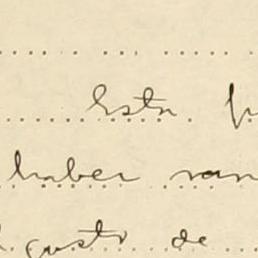 Esta
haber
gusto de